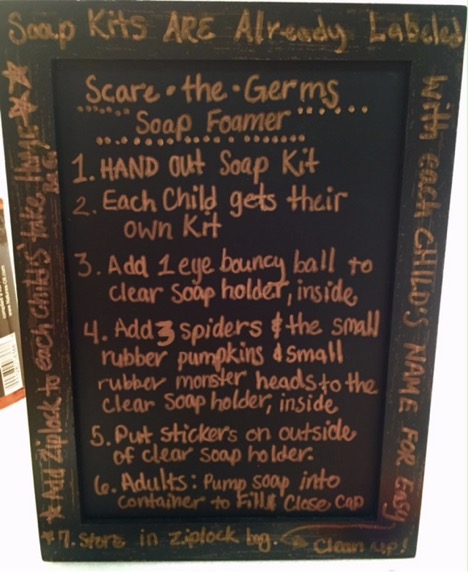 Soap Kits ARE Already Labeled
with each CHILD'S NAME FOR Easy
Clean up!
Scare • the • Germs
Soap Foamer
1. HAND OUT Soap Kit
2. Each Child gets their
own Kit
3. Add 1 eye bouncy ball to
clear soap holder, inside
4. Add 3 spiders & the small
rubber pumpkins & small
rubber monster heads to the
clear soap holder, inside
5. Put stickers on outside
of clear soap holder.
6. Adults: Pump soap into
container to Fill & Close Cap
*7. Store in Ziplock bag.
*Add Ziplock to each childs' take Home